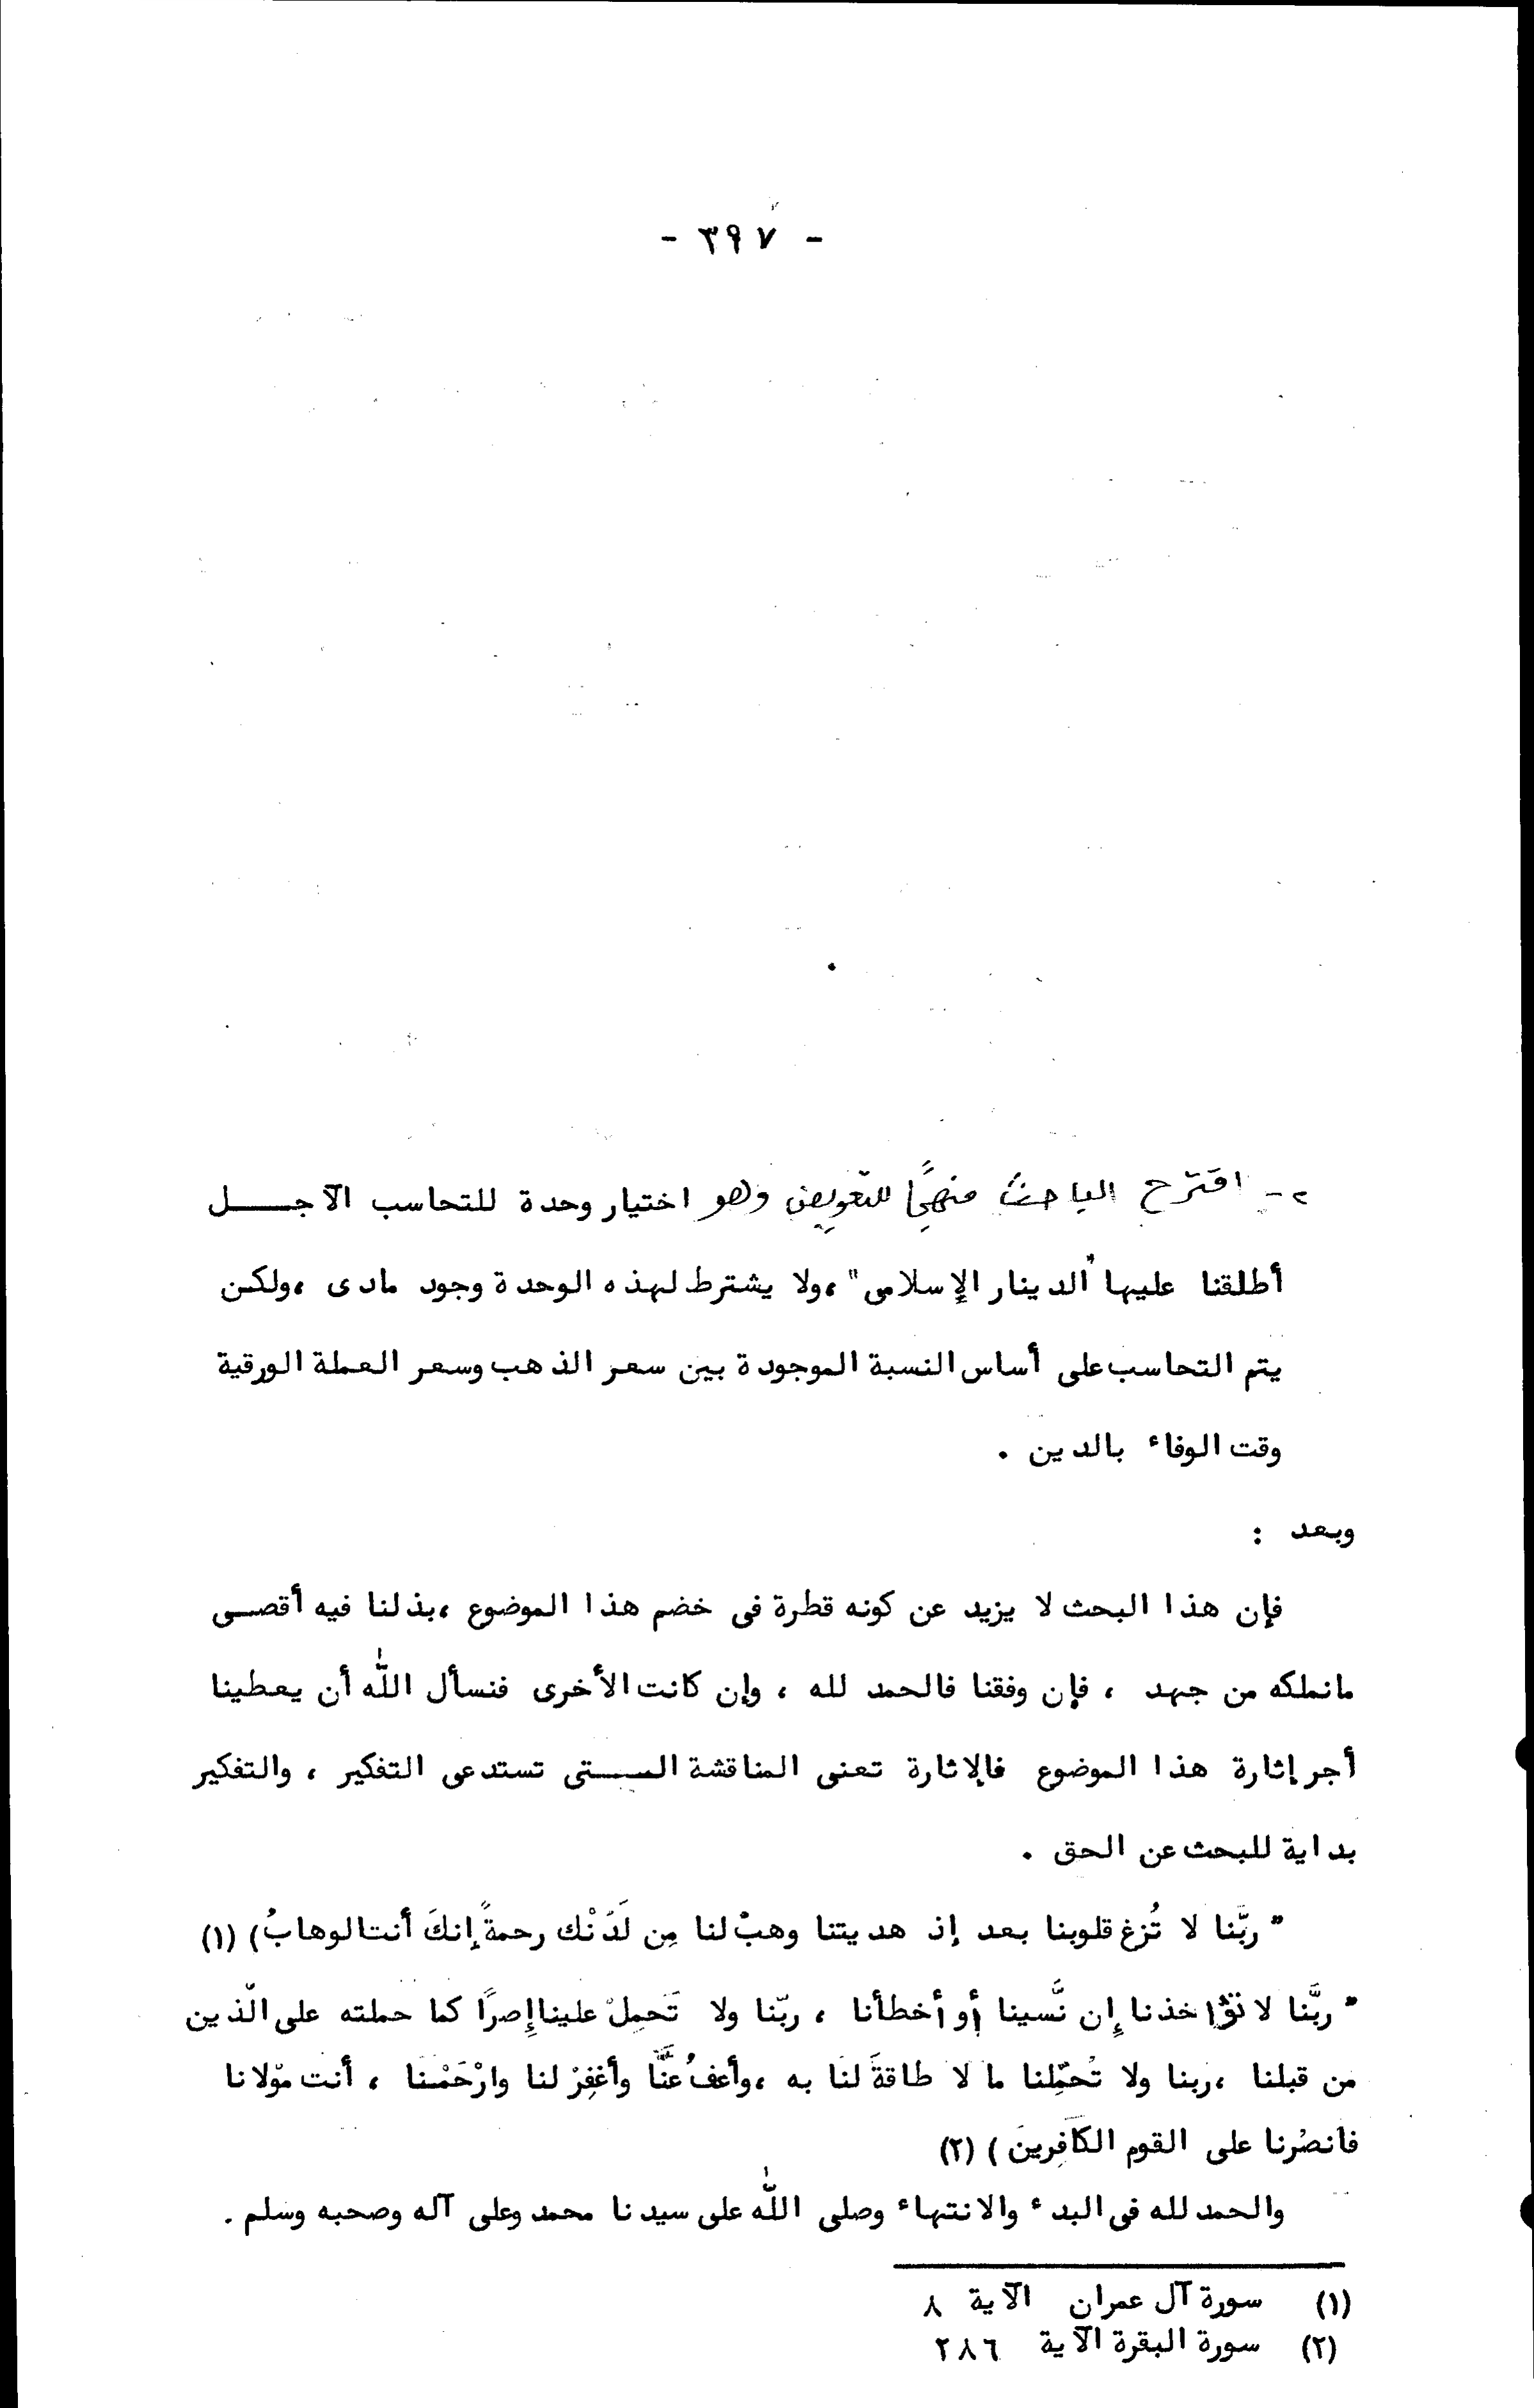 - ٣٩٧ -
٢- اقترح الباحث منهجًا للتعويض وهو اختيار وحدة للتحاسب الآجـــل
أطلقنا عليها "الدينار الإسلامى" ،ولا يشترط لهذه الوحدة وجود مادى ،ولكن
يتم التحاسب على أساس النسبة الموجودة بين سعر الذهب وسعر العملة الورقية
وقت الوفاء بالدين .
وبعد :
فإن هذا البحث لا يزيد عن كونه قطرة فى خضم هذا الموضوع ،بذلنا فيه أقصى
مانملكه من جهد ، فإن وفقنا فالحمد لله ، وإن كانت الأخرى فنسأل اللّٰه أن يعطينا
أجر إثارة هذا الموضوع فالإثارة تعنى المناقشة الـــتى تستدعى التفكير ، والتفكير
بداية للبحث عن الحق .
" ربّنا لا تُزغ قلوبنا بعد إذ هديتنا وهبْ لنا مِن لَدَنْك رحمةً إنكَ أنت الوهابُ ) (١)
" ربَّنا لا تؤاخذنا إِن نَّسينا أو أخطأنا ، ربّنا ولا تَحمِلْ علينا إِصرًا كما حملته على الّذين
من قبلنا ،ربنا ولا تُحمّلنا ما لا طاقةَ لنَا به ،وأعفُ عنَّا وأغفِرْ لنا وارْحَمْنا ، أنت موْلانا
فانصُرنا على القوم الكَافِرينَ ) (٢)
والحمد لله فى البدء والانتهاء وصلى اللّٰه على سيدنا محمد وعلى آله وصحبه وسلم .
(١) سورة آل عمران الآية ٨
(٢) سورة البقرة الآية ٢٨٦